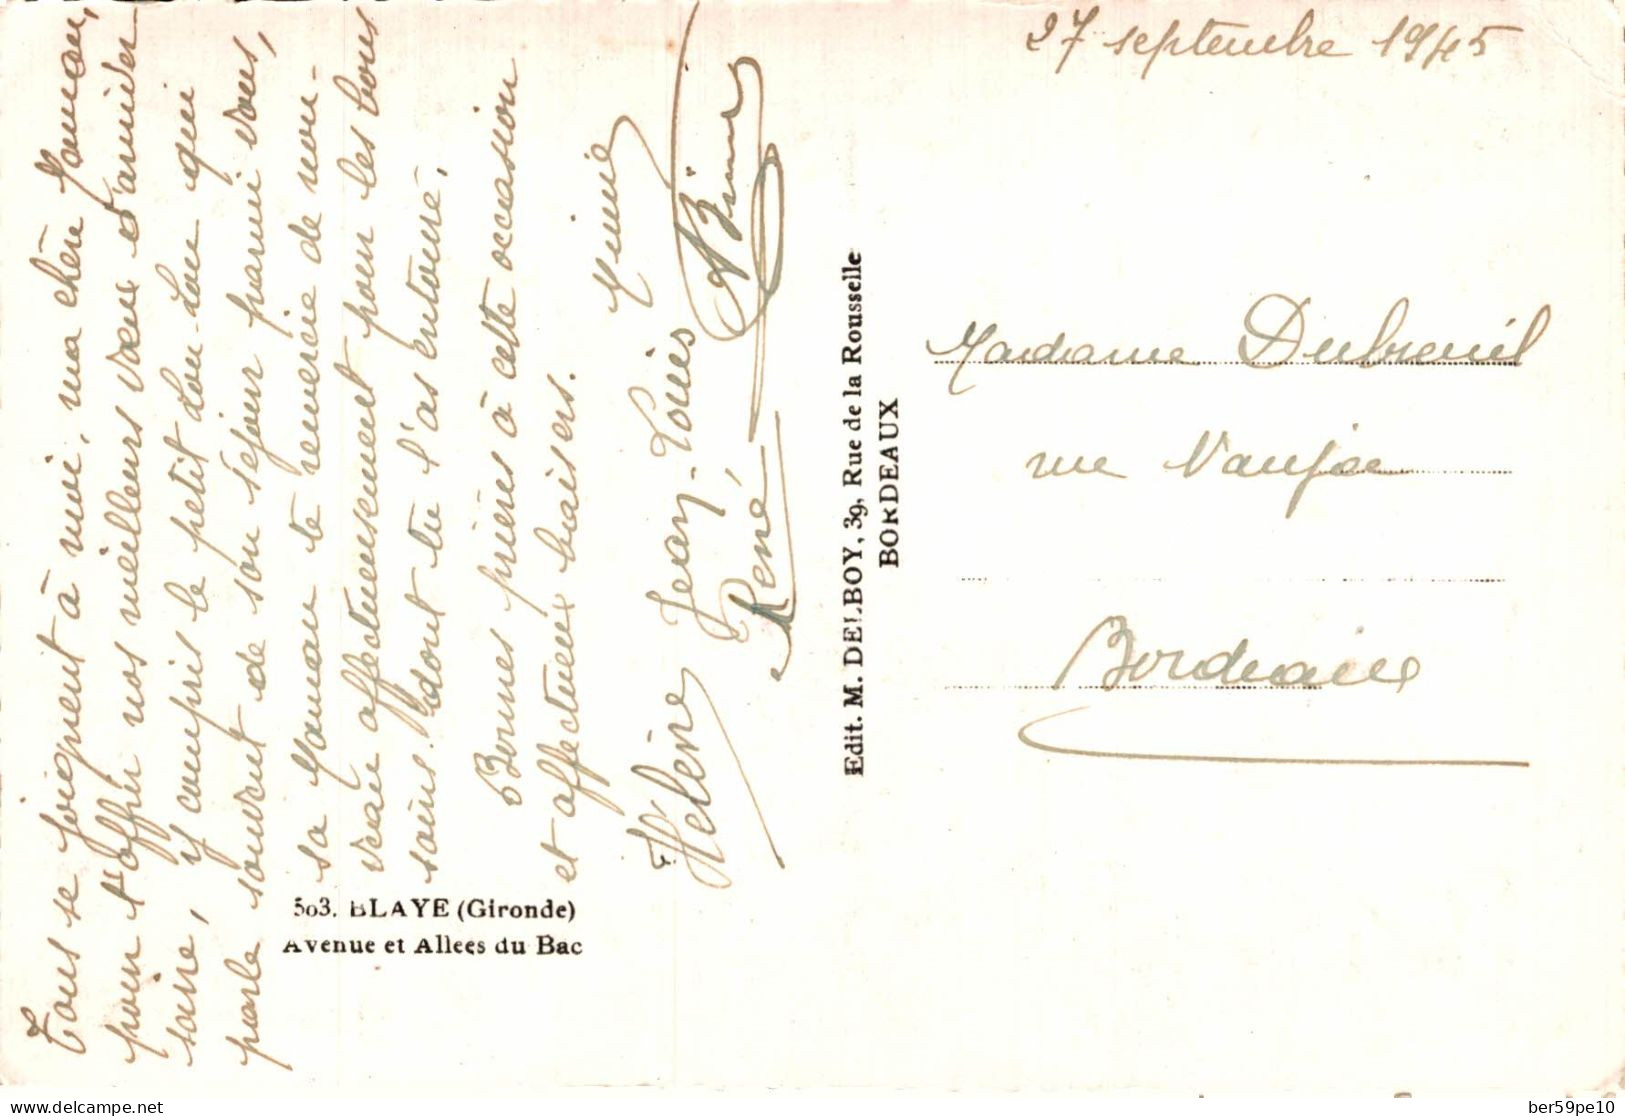 27 septembre 1945
Tous se joignent à moi, ma chère Maman,
pour t'offrir nos meilleurs vœux d'anniver
saire, y compris le petit Lou-Lou qui
parle souvent de son séjour parmi vous,
sa Maman te remercie de nou-
veau affectueusement pour les bons
soins dont tu l'as entouré.
Bonnes prières à cette occasion
et affectueux baisers.
Mimie
Hélène Jean-Louis
René
Madame Dubreuil
rue
Bordeaux
Edit. M. DELBOY, 39, Rue de la Rousselle
BORDEAUX
503. BLAYE (Gironde)
Avenue et Allees du Bac
delcampe.net
ber59pe10